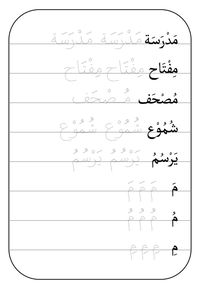 مَدْرَسَة مَدْرَسَة مَدْرَسَة
مِفْتَاح مِفْتَاح مِفْتَاح
مُصْحَف مُصْحَف
شُمُوْع شُمُوْع شُمُوْع
يَرْسُمُ يَرْسُمُ يَرْسُمُ
مَ مَ مَ مَ
مُ مُ مُ مُ
مِ مِ مِ مِ